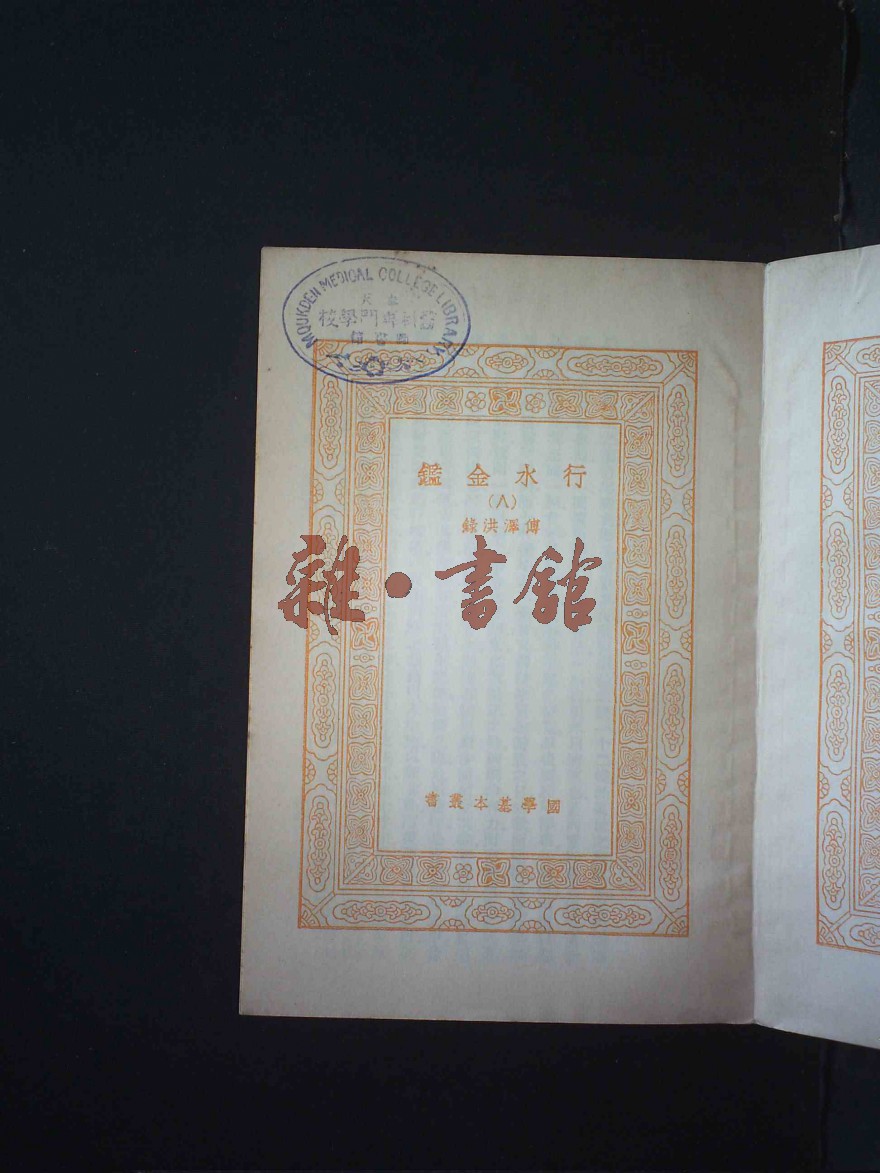 MOUKDEN MEDICAL COLLEGE LIBRARY
行水金鑑
(八)
傅澤洪錄
雜·書館
國學基本叢書